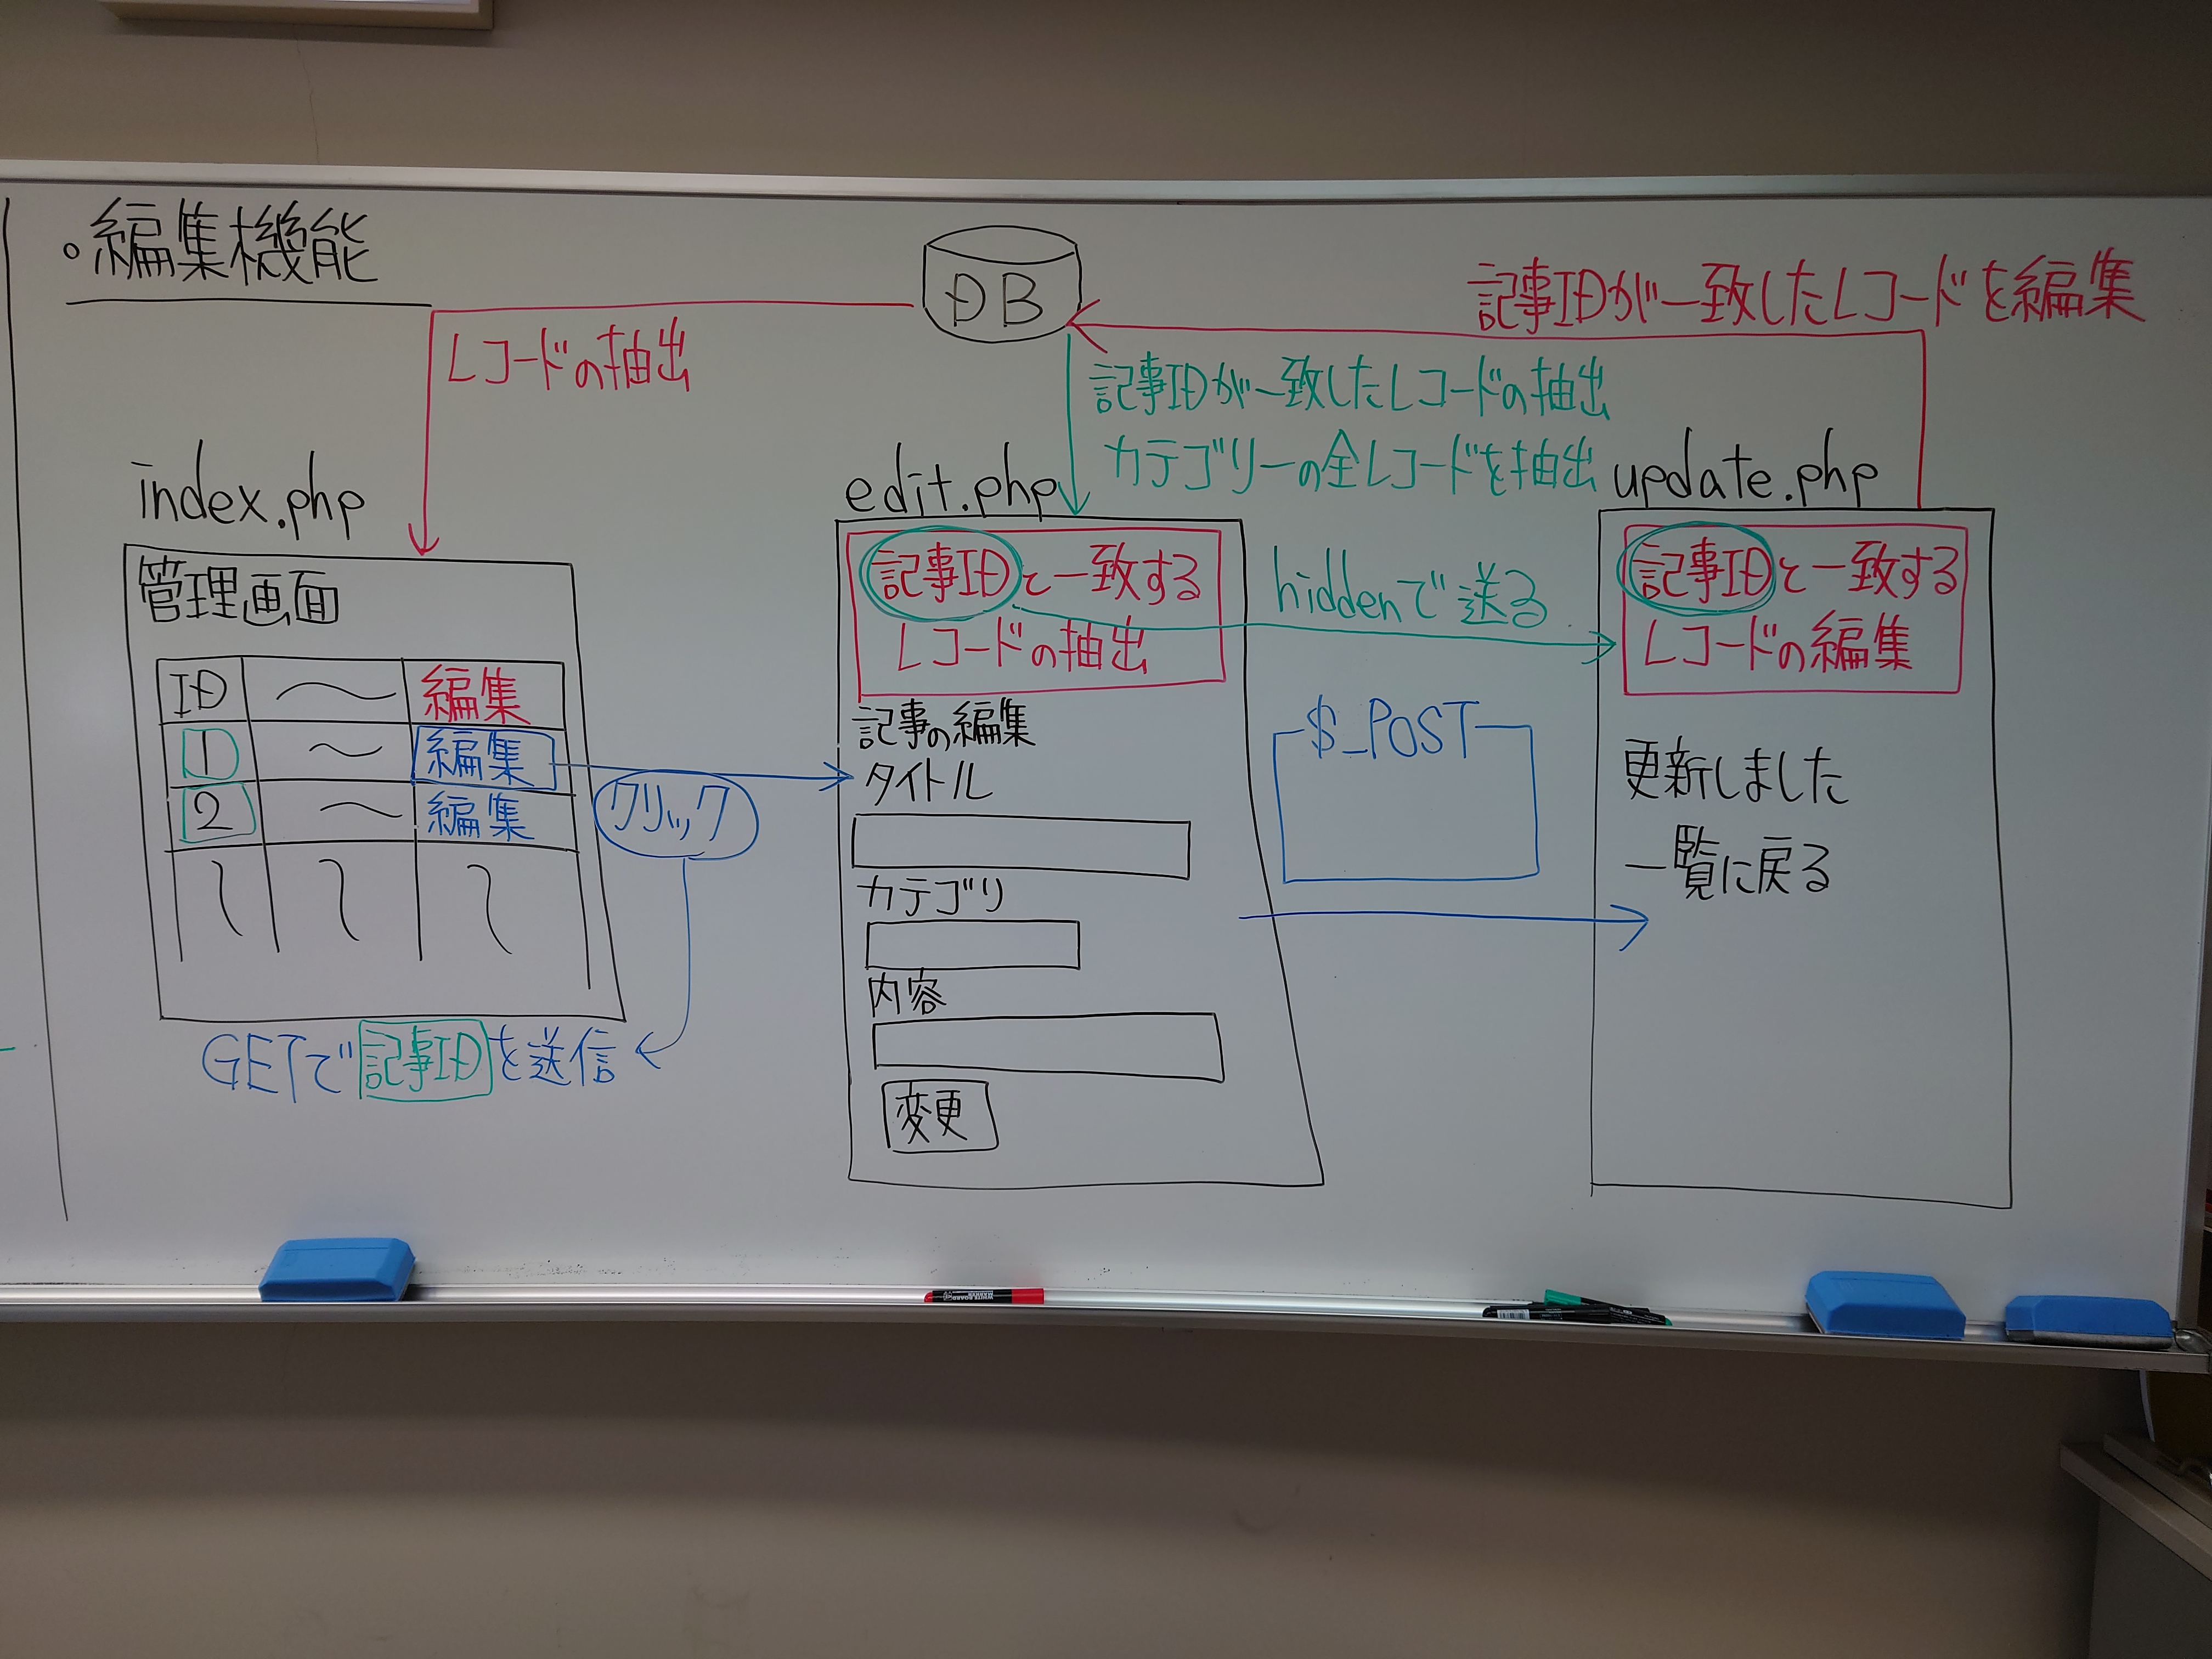 ・編集機能
DB
レコードの抽出
記事IDが一致したレコードを編集
記事IDが一致したレコードの抽出
カテゴリーの全レコードを抽出
index.php
管理画面
ID 編集
1 編集
2 編集
クリック
GETで記事IDを送信
edit.php
記事IDと一致する
レコードの抽出
記事の編集
タイトル
カテゴリ
内容
変更
hiddenで送る
$_POST
update.php
記事IDと一致する
レコードの編集
更新しました
一覧に戻る